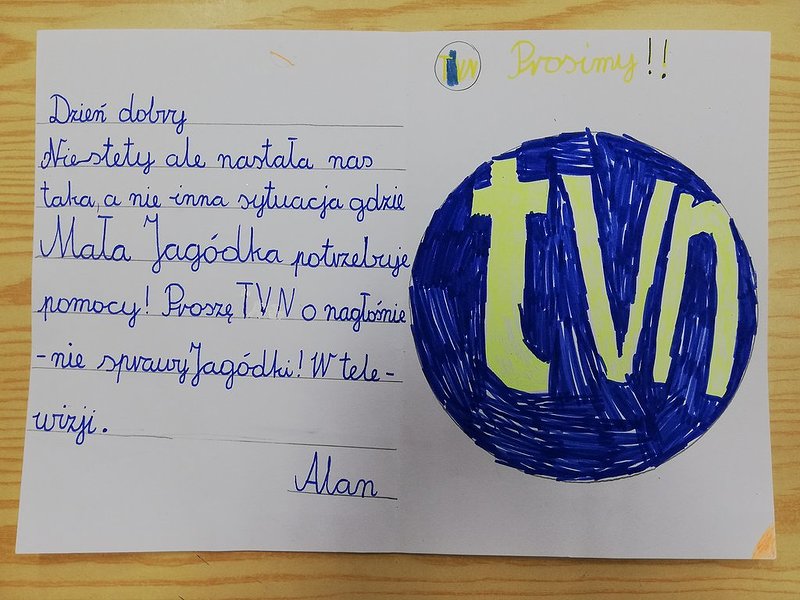 Dzień dobry
Niestety ale nastała nas
taka, a nie inna sytuacja gdzie
Mała Jagódka potrzebuje
pomocy! Proszę TVN o nagłośnie
-nie sprawy Jagódki! W tele-
wizji.
Alan
TVN Prosimy!!
tvn